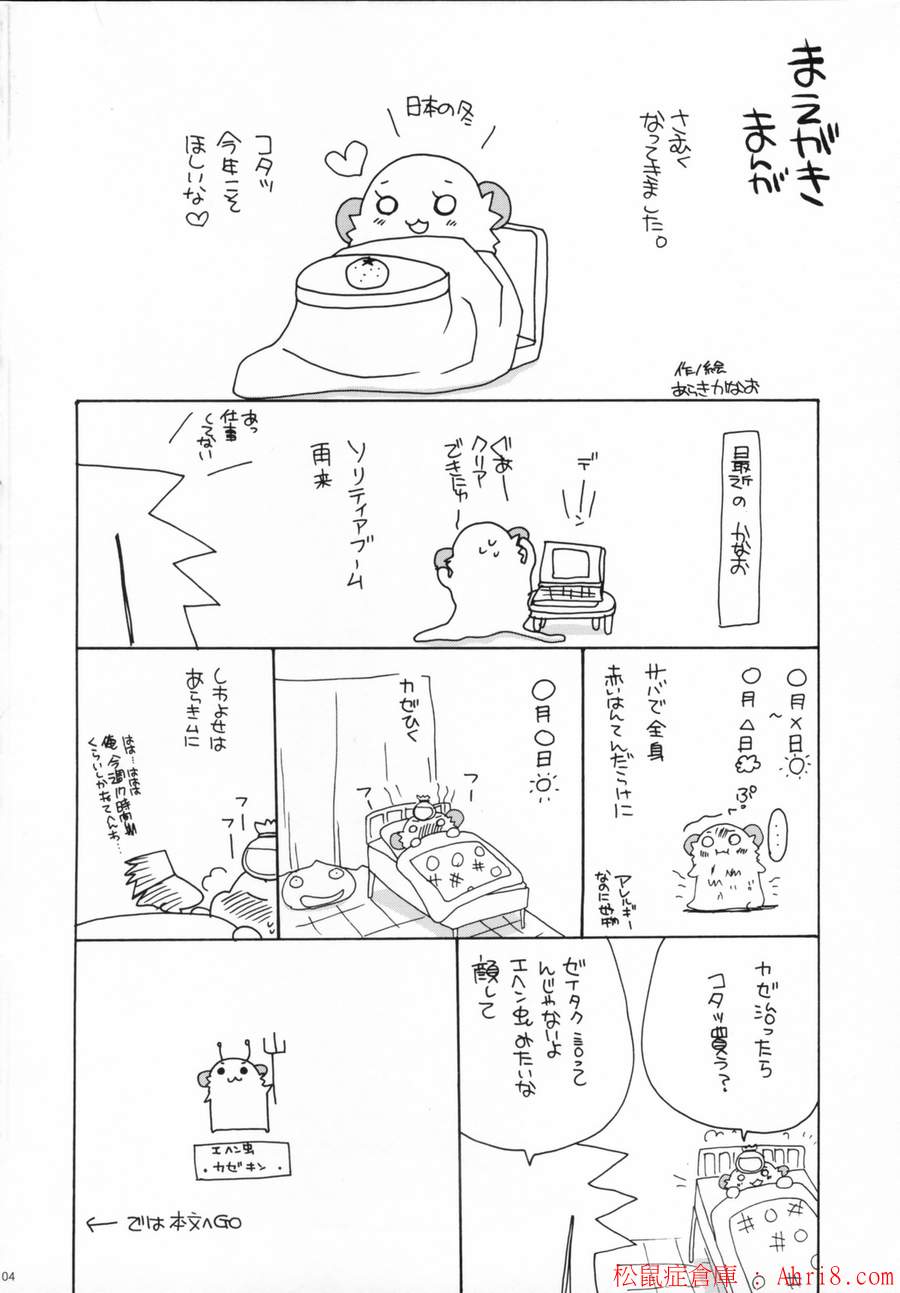 まえがき
まんが
さむく
なってきました。
日本の冬
コタツ
今年こそ
ほしいな♡
作/絵
あらきかなお
最近の かなお
デーン
ぐあー
クリア
できにゅ〜
ソリティアブーム
再来
あっ
仕事
してない
○月×日
〜
○月△日
ぷ。
サバで全身
赤いはんてんだらけに
・・・・
アレルギー
○月○日
カゼひく
フー
フー
しわよせは
あらきムに
フー
フー
はは…ははは
俺今週17時間
カゼ治ったら
コタツ買う?
ゼイタク言って
んじゃないよ
エヘン虫みたいな
顔して
エヘン虫
・カゼキン・
← では本文へGO
04
松鼠症倉庫 : Ahri8.com